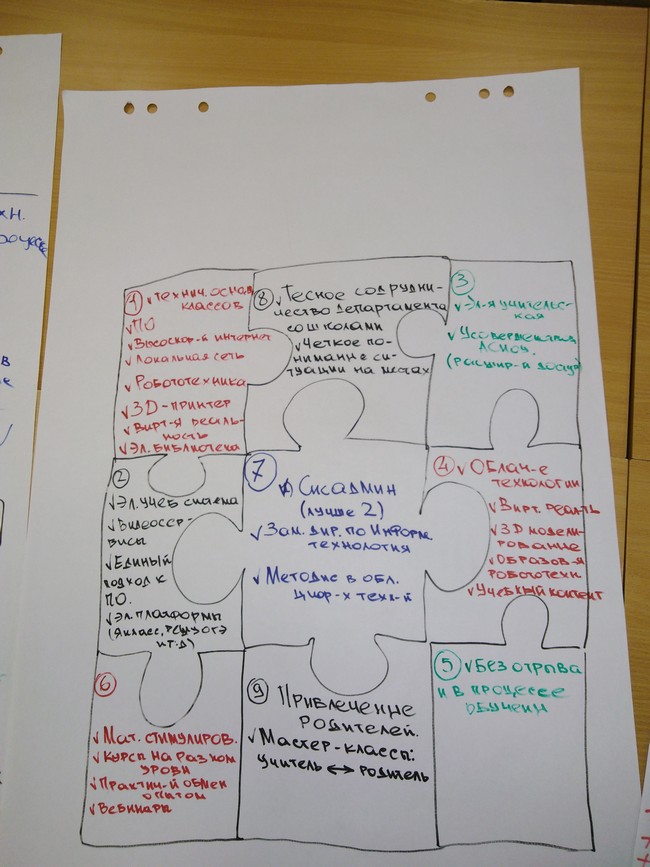 хн.
1 ✓ Технич. оснащ
классов
✓ ПО
✓ Высокоск-й интернет
✓ Локальная сеть
✓ Робототехника
✓ 3D-принтер
✓ Вирт-я реаль-
ность
✓ Эл. библиотека
8 ✓ Тесное сотрудни-
чество Департамента
со школами
✓ Четкое по-
нимание си-
туации на местах
3
✓ Эл-я учительс-
кая
✓ Усовершенствов
АСИОУ.
(расшир-й доступ)
2
✓ Эл. учеб система
✓ Видеосер-
висы
✓ Единый
подход к
ПО.
✓ Эл. платформы
(Якласс, РешуОГЭ
и т.д)
7
✓ Сисадмин
(лучше 2)
✓ Зам. дир. по Информ.
технология
✓ Методис в обл.
цифр-х техн-й
4 ✓ Облач-е
технологии
✓ Вирт. реал-ть
✓ 3D модели-
рование
✓ Образов-я
робототехн
✓ Учебный контент
6
✓ Мат. стимулиров.
✓ Курсы на разном
уровн
✓ Практич-й обмен
опытом
✓ Вебинары
9 Привлечение
родителей.
✓ Мастер-классы:
учитель ↔ родитель
5 ✓ Без отрыва
и в процессе
обучени